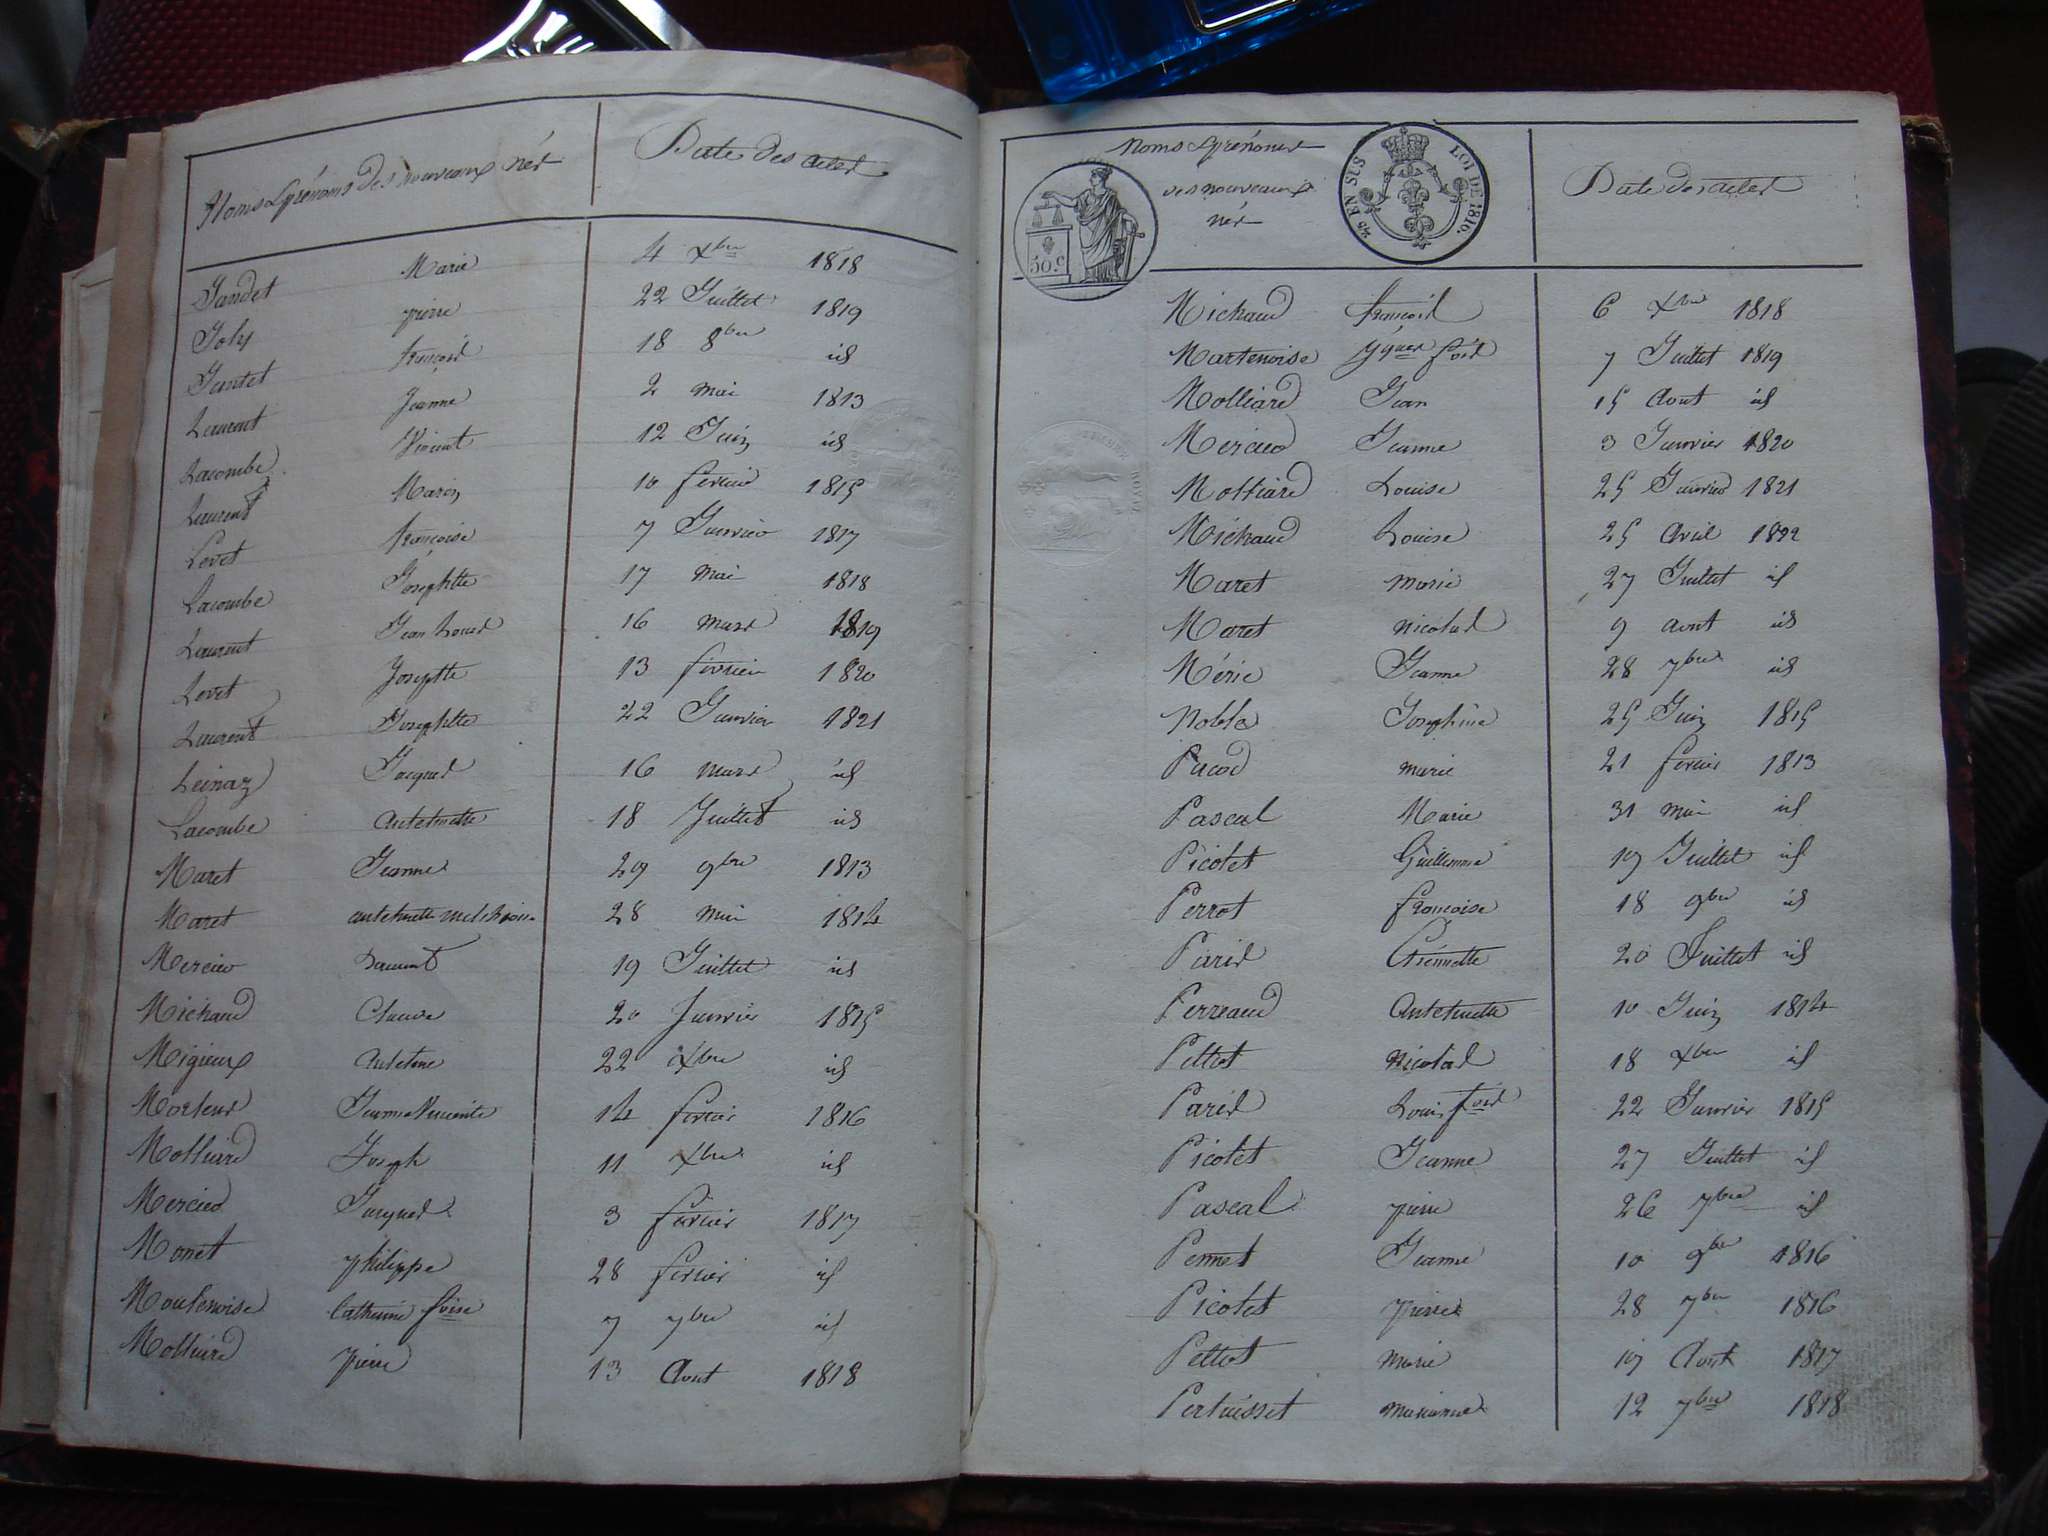 Noms & prénoms des nouveaux nés
Date des actes
Jandet Marie 4 Xbre 1818
Joly pierre 22 Juillet 1819
Jantet françois 18 8bre id
Laurent Jeanne 2 mai 1813
Lacombe Vincent 12 Juin id
Laurent Marie 10 fevrier 1815
Levet françoise 7 Janvier 1817
Lacombe Josephtte 17 mai 1818
Laurent Jean Louis 16 mars 1819
Levet Josephtte 13 fevrier 1820
Laurent Josephtte 22 Janvier 1821
Jacques 16 mars id
Lacombe antoinette 18 Juillet id
Maret Jeanne 29 9bre 1813
Maret antoinette 28 mai 1814
Mercier Laurent 19 Juillet id
Michaud Claude 20 Janvier 1815
Migieux antoine 22 Xbre id
Morteur Jeanne Vincente 14 fevrier 1816
Molliard Joseph 11 Xbre id
Mercier Jacques 3 fevrier 1817
Monet philippe 28 fevrier id
Moutenoise Catherine foise 7 7bre id
Molliard pierre 13 Aout 1818
Noms & prénoms
des nouveaux
nés
50.c
EN SUS LOI DE 1816.
Date des actes
Michaud françois 6 Xbre 1818
Martenoise fois 7 Juillet 1819
Molliard Jean 15 Aout id
Mercier Jeanne 3 Janvier 1820
Molliard Louise 25 Janvier 1821
Michaud Louise 25 Avril 1822
Maret marie 27 Juillet id
Maret nicolas 9 aout id
Méric Jeanne 28 7bre id
Noble Josephine 25 Juin 1815
Pacod marie 21 fevrier 1813
Pascal Marie 31 mai id
Picolet Guillemme 19 Juillet id
Perrot françoise 18 9bre id
Paris Etiennette 20 Juillet id
Perreaud Antoinette 10 Juin 1814
Pettiot nicolas 18 Xbre id
Paris Louis fois 22 Janvier 1815
Picolet Jeanne 27 Juillet id
Pascal pierre 26 7bre id
Pernet Jeanne 10 9bre 1816
Picolet pierre 28 7bre 1816
Pettiot marie 19 Aout 1817
Pertuisset marianne 12 7bre 1818